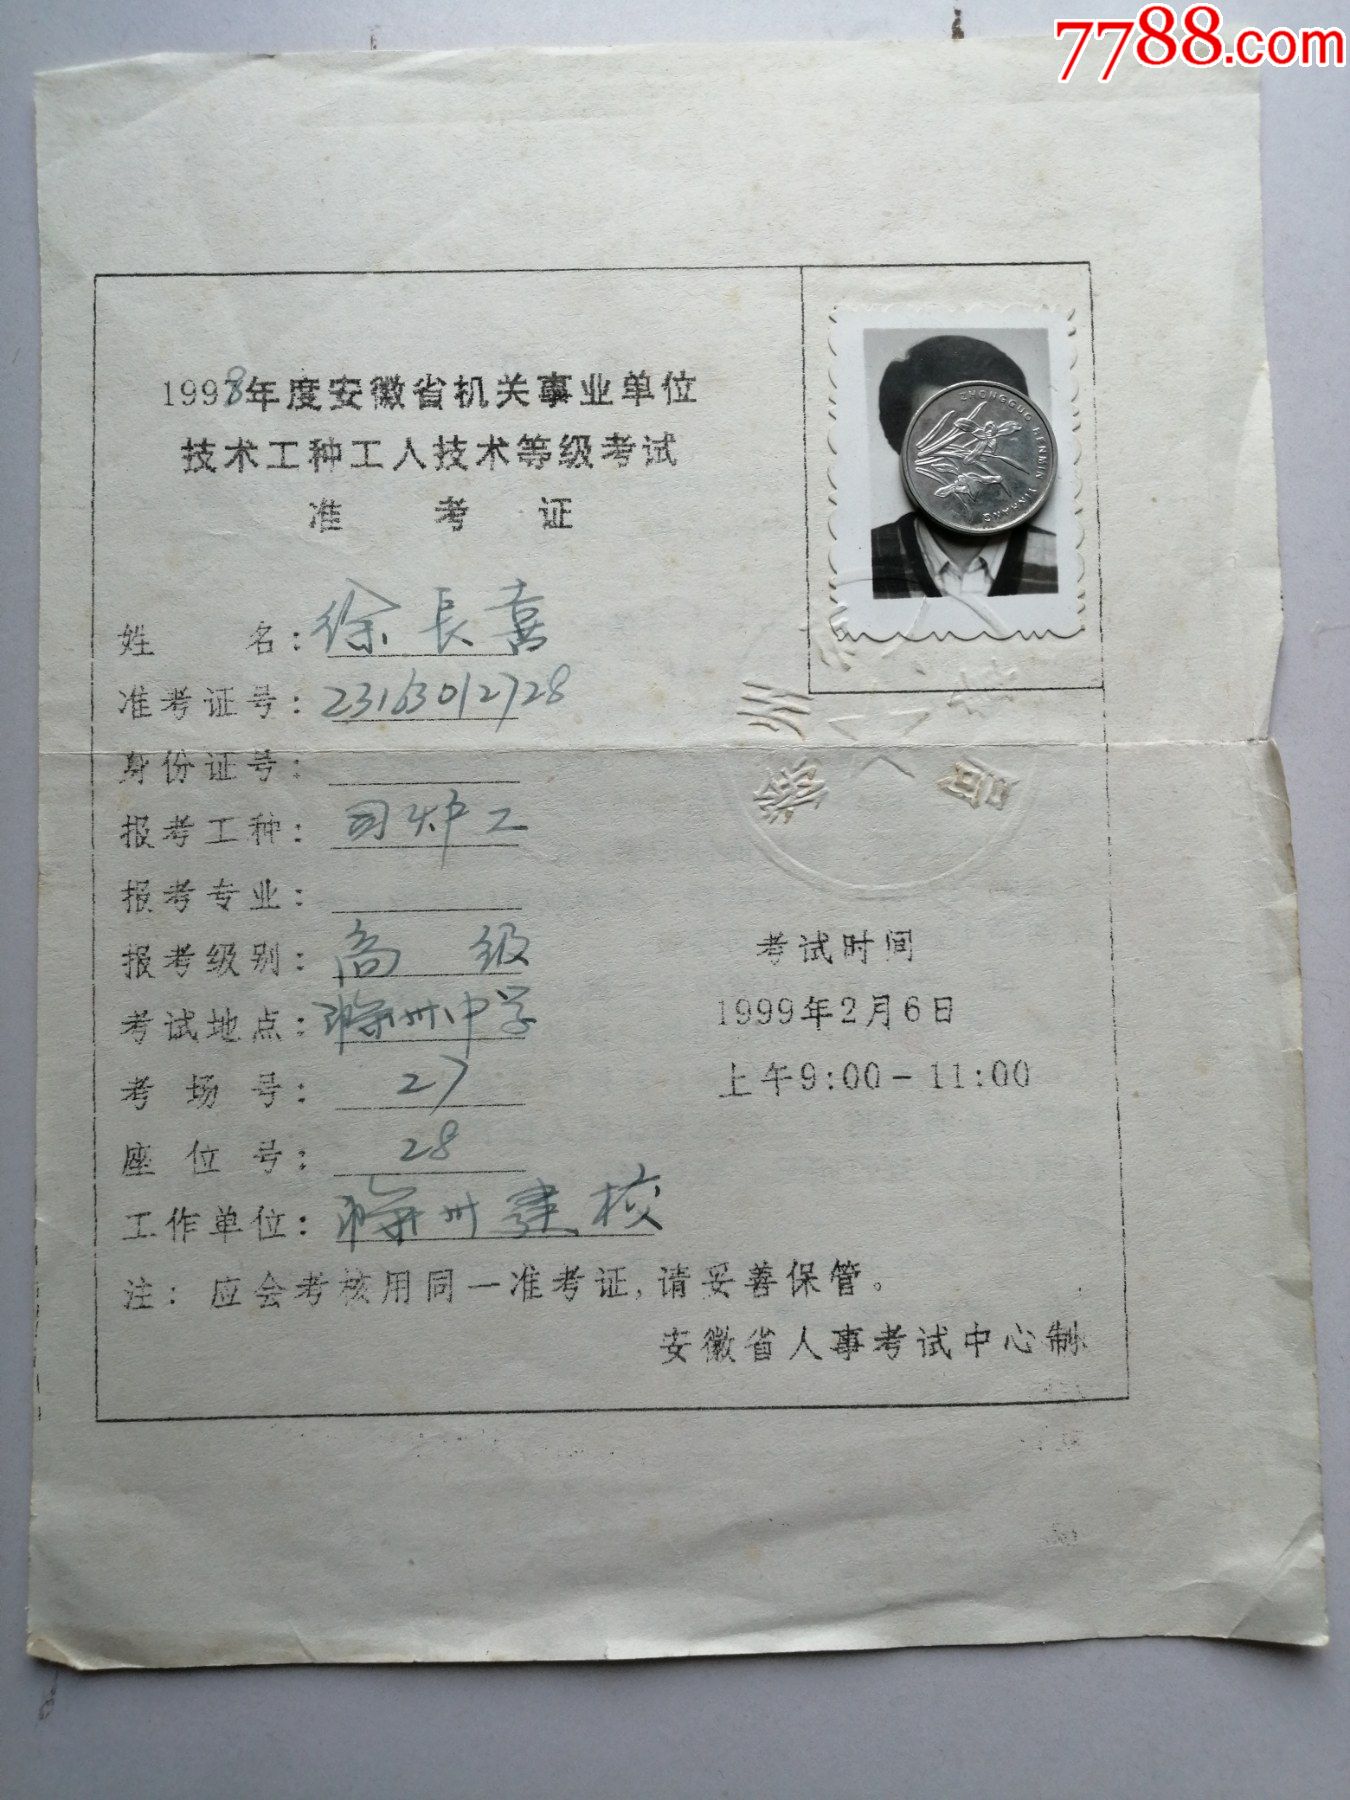 7788.com
1998年度安徽省机关事业单位
技术工种工人技术等级考试
准 考 证
ZHONGGUO RENMIN YINHANG
姓 名：徐長喜
准考证号：23163012728
身份证号：
报考工种：司炉工
报考专业：
报考级别：高 级
考试地点：滁州中学
考 场 号：27
座 位 号：28
工作单位：滁州建校
考试时间
1999年2月6日
上午9:00-11:00
注：应会考核用同一准考证,请妥善保管。
安徽省人事考试中心制